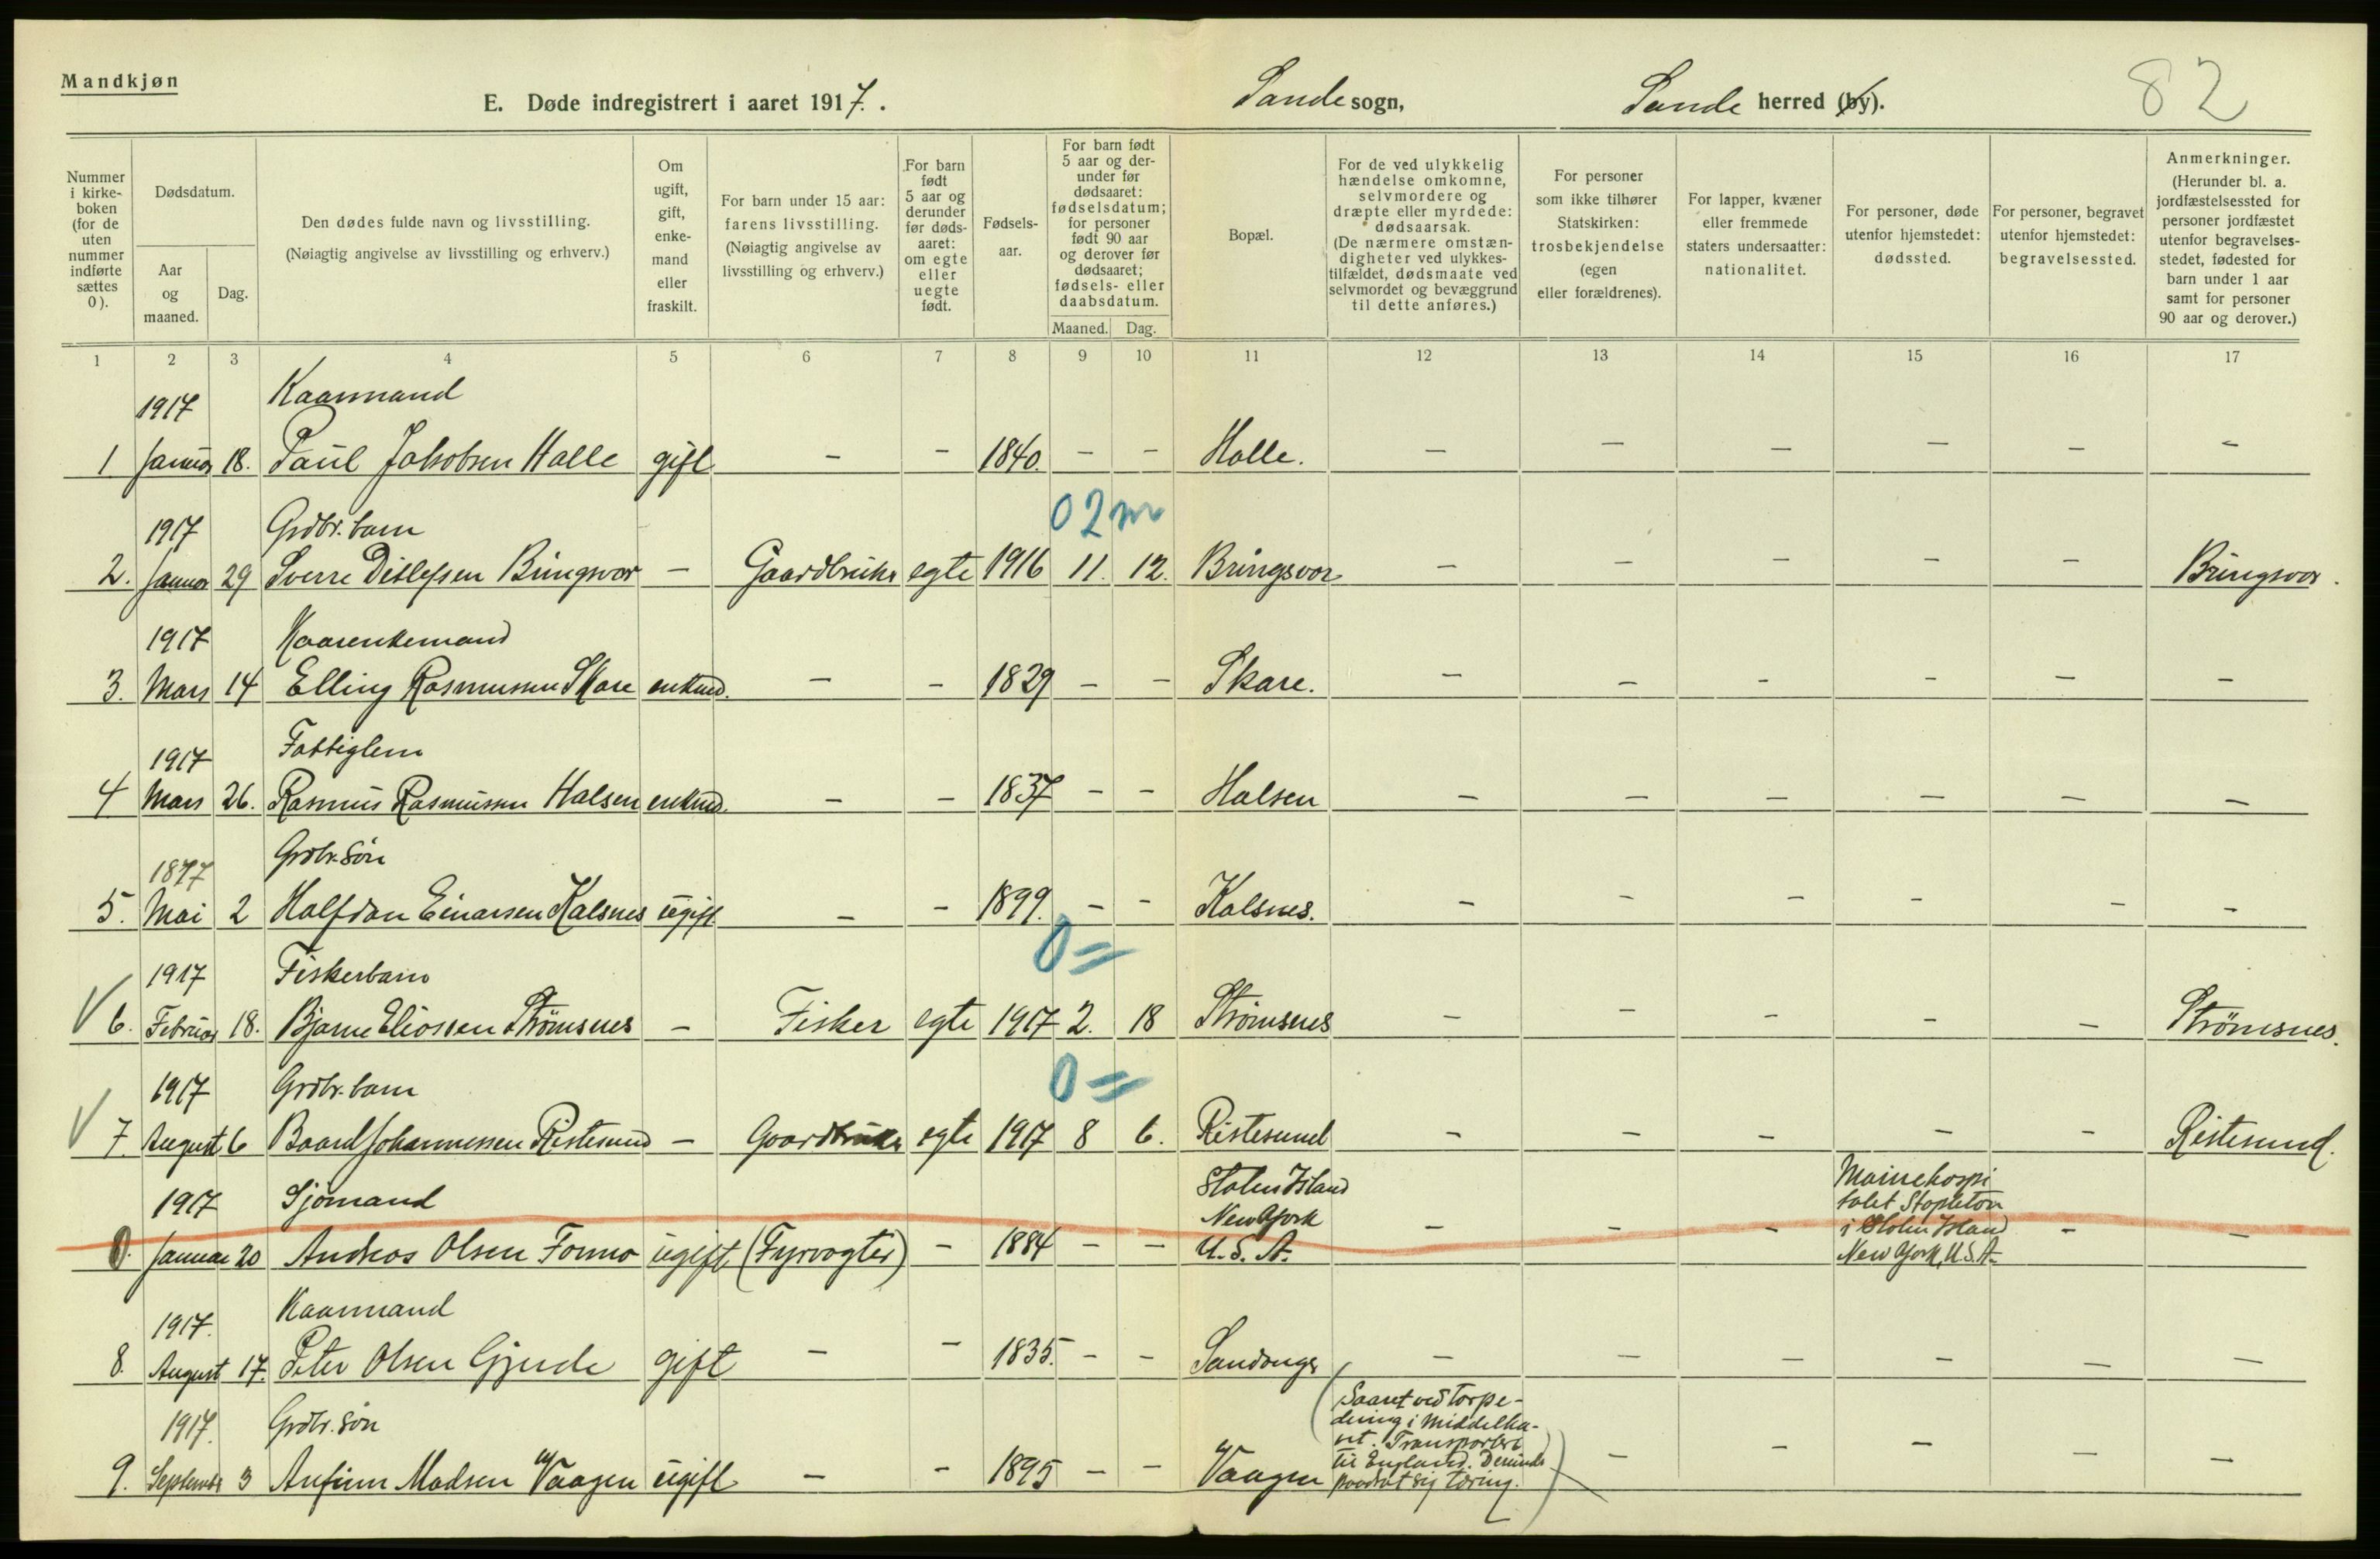 Mandkjøn
E. Døde indregistrert i aaret 1917.
Sande sogn,
Sande herred (by).
82
Nummer i kirke-boken (for de uten nummer indførte sættes 0).
Dødsdatum.
Aar og maaned.
Dag.
Den dødes fulde navn og livsstilling.
(Nøiagtig angivelse av livsstilling og erhverv.)
Om ugift, gift, enke-mand eller fraskilt.
For barn under 15 aar: farens livsstilling. (Nøiagtig angivelse av livsstilling og erhverv.)
For barn født 5 aar og derunder før døds-aaret: om egte eller uegte født.
Fødsels-aar.
For barn født 5 aar og der-under før dødsaaret: fødselsdatum; for personer født 90 aar og derover før dødsaaret; fødsels- eller daabsdatum.
Maaned. Dag.
Bopæl.
For de ved ulykkelig hændelse omkomne, selvmordere og dræpte eller myrdede: dødsaarsak. (De nærmere omstæn-digheter ved ulykkes-tilfældet, dødsmaate ved selvmordet og bevæggrund til dette anføres.)
For personer som ikke tilhører Statskirken: trosbekjendelse (egen eller forældrenes).
For lapper, kvæner eller fremmede staters undersaatter: nationalitet.
For personer, døde utenfor hjemstedet: dødssted.
For personer, begravet utenfor hjemstedet: begravelsessted.
Anmerkninger. (Herunder bl. a. jordfæstelsessted for personer jordfæstet utenfor begravelses-stedet, fødested for barn under 1 aar samt for personer 90 aar og derover.)
1 2 3 4 5 6 7 8 9 10 11 12 13 14 15 16 17
1917 Kaarmand
1 Januar 18. Paul Jakobsen Halle gift - - 1840. - - Halle. - - - - - -
1917 Grdbr. barn 0 2 m
2. Januar 29 Sverre Ditlefsen Bringsvor - Gaardbruker egte 1916 11. 12. Bringsvor - - - - - Bringsvor.
1917 Kaarenkemand
3. Mars 14 Elling Rasmussen Skare enkmd. - - 1829 - - Skare. - - - - - -
1917 Fattiglem
4 Mars 26. Rasmus Rasmussen Halsen enkmd. - - 1837 - - Halsen - - - - - -
1877 Grdbr. søn
5. Mai 2 Halfdan Einarsen Kalsnes ugift - - 1899. - - Kalsnes. - - - - - -
1917 Fiskerbarn 0 =
√ 6. Februar 18. Bjarne Eliassen Strømsnes - Fisker egte 1917 2. 18 Strømsnes - - - - - Strømsnes.
1917 Grdbr. barn 0 =
√ 7. August 6 Baard Johannessen Ristesund - Gaardbruker egte 1917 8 6. Ristesund - - - - - Ristesund.
1917 Sjømand Staten Island New York Marinehospi
talet Stapleton
0. Januar 20 Andreas Olsen Formo ugift (Fyrvogter) - 1884 - - U.S.A. - - - i Staten Island - -
New York, U.S.A.
1917. Kaarmand
8. August 17. Peter Olsen Gjerde gift - - 1835. - - Sandanger - - - - - -
1917. Grdbr. søn (Saaret ved torpe-
dering i Middelha-
vet. Transportert
til England. Derunder
9. September 3 Anfinn Madsen Vaagen ugift - - 1895 - - Vaagen paadrat sig tæring.) - - - - -